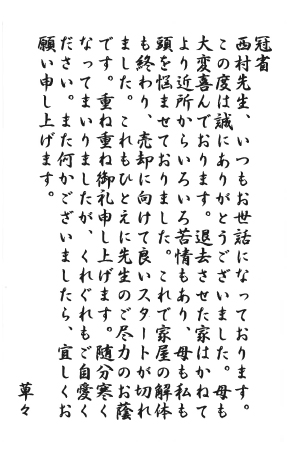 冠省
西村先生、いつもお世話になっております。
この度は誠にありがとうございました。母も
大変喜んでおります。退去させた家はかねて
より近所からいろいろ苦情もあり、母も私も
頭を悩ませておりました。これで家屋の解体
も終わり、売却に向けて良いスタートが切れ
ました。これもひとえに先生のご尽力のお蔭
です。重ね重ね御礼申し上げます。随分寒く
なってまいりましたが、くれぐれもご自愛く
ださい。また何かございましたら、宜しくお
願い申し上げます。
草々